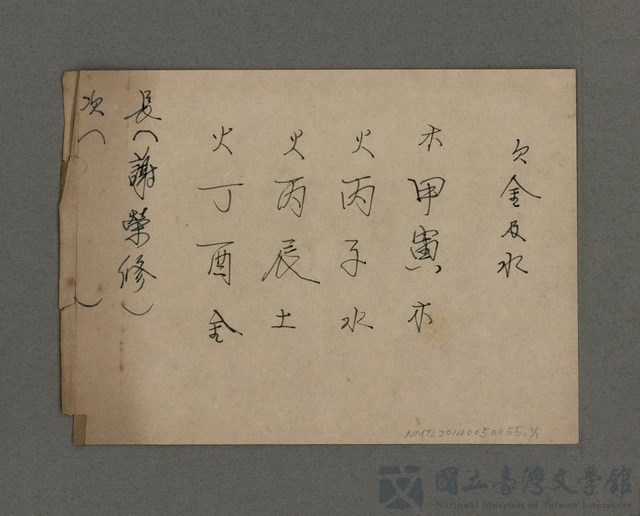 欠金及水
木甲寅木
火丙子水
火丙辰土
火丁酉金
長(謝榮修)
次( )
NMTL20140050055
國立臺灣文學館
National Museum of Taiwan Literature